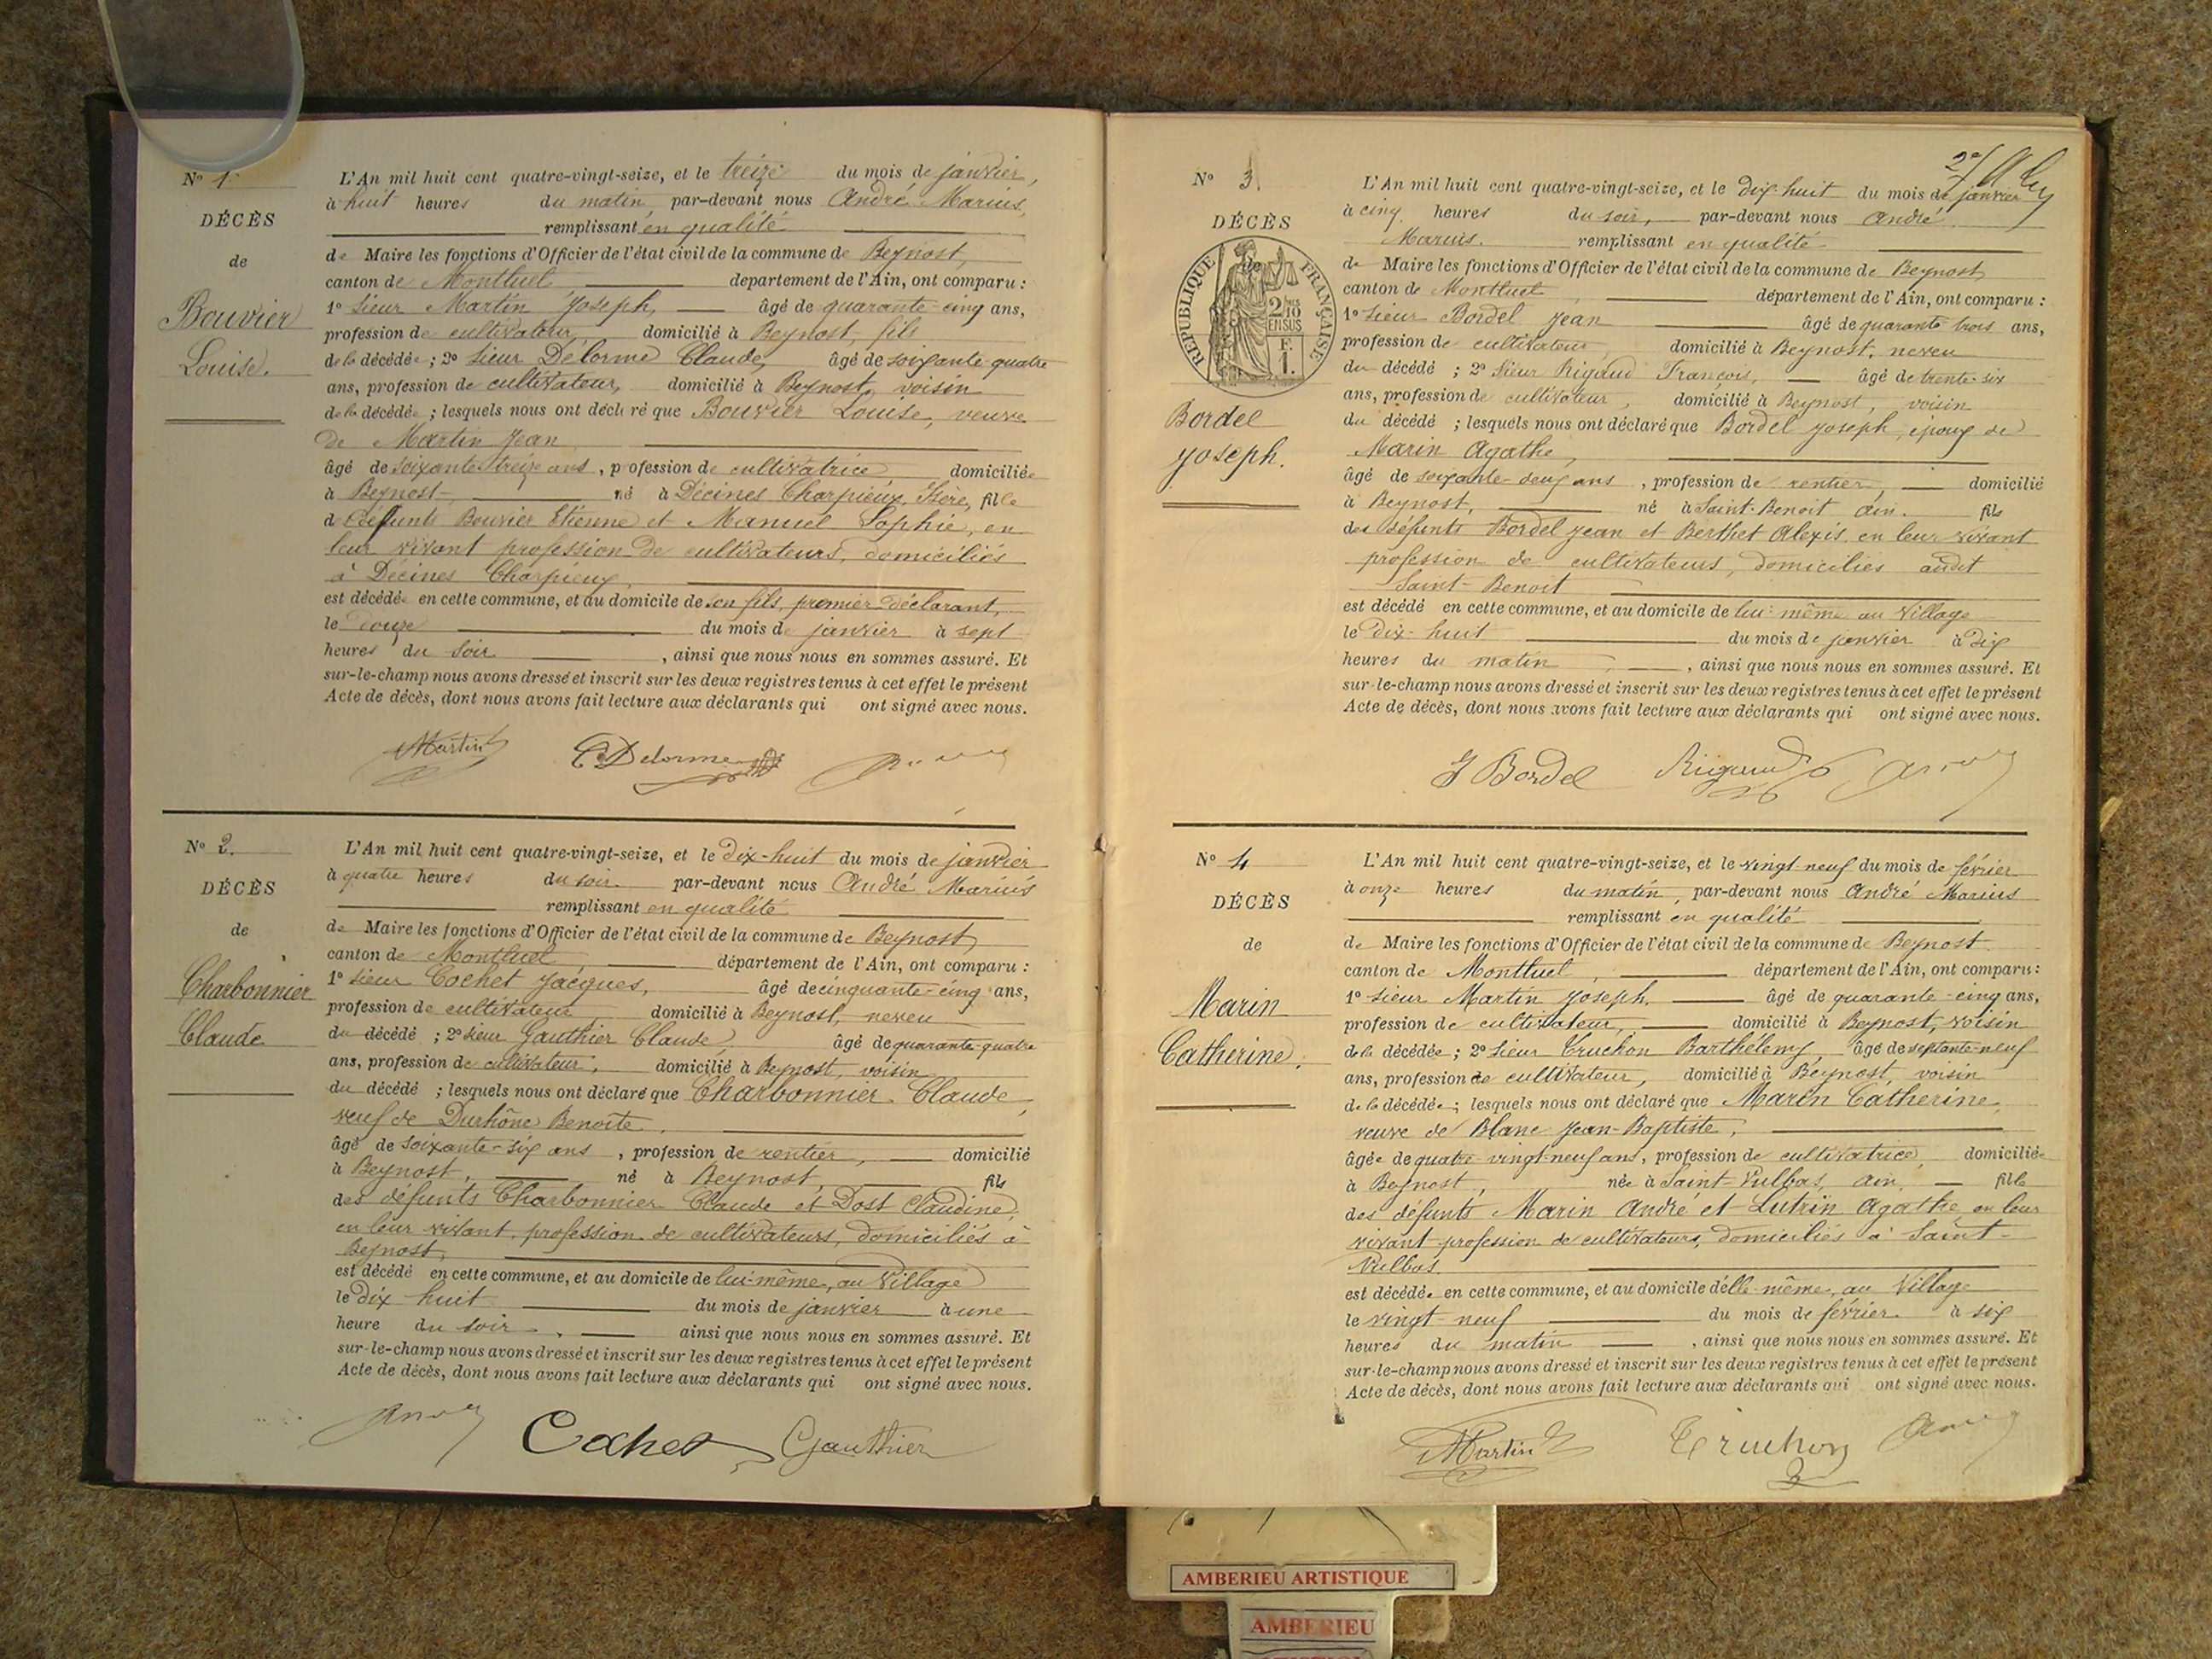 N° 1
DÉCÈS
de
Bouvier
Louise.
L'An mil huit cent quatre-vingt-seize, et le treize du mois de janvier,
à huit heures du matin, par-devant nous André Marius,
remplissant en qualité
de Maire les fonctions d'Officier de l'état civil de la commune de Beynost,
canton de Montluel departement de l'Ain, ont comparu :
1° Sieur Martin Joseph, âgé de quarante-cinq ans,
profession de cultivateur, domicilié à Beynost, fils
de la décédée ; 2° Sieur Delorme Claude, âgé de soixante quatre
ans, profession de cultivateur, domicilié à Beynost, voisin
de la décédée ; lesquels nous ont déclaré que Bouvier Louise, veuve
de Martin Jean
âgé de soixante-treize ans, profession de cultivatrice domiciliée
à Beynost né à Décines Charpieux, Isère, fille
de défunts Bouvier Etienne et Manuel Sophie, en
leur vivant profession de cultivateurs, domiciliés
à Décines Charpieux,
est décédée en cette commune, et au domicile de son fils, premier déclarant,
le douze du mois de janvier à sept
heures du soir, ainsi que nous nous en sommes assuré. Et
sur-le-champ nous avons dressé et inscrit sur les deux registres tenus à cet effet le présent
Acte de décès, dont nous avons fait lecture aux déclarants qui ont signé avec nous.
Martin C. Delorme
N° 2.
DÉCÈS
de
Charbonnier
Claude
L'An mil huit cent quatre-vingt-seize, et le dix-huit du mois de janvier
à quatre heures du soir par-devant nous André Marius
remplissant en qualité
de Maire les fonctions d'Officier de l'état civil de la commune de Beynost,
canton de Montluel département de l'Ain, ont comparu :
1° Sieur Cochet Jacques, âgé de cinquante-cinq ans,
profession de cultivateur domicilié à Beynost, neveu
du décédé ; 2° Sieur Gauthier Claude, âgé de quarante-quatre
ans, profession de cultivateur, domicilié à Beynost, voisin
du décédé ; lesquels nous ont déclaré que Charbonnier Claude,
veuf de Durhône Benoîte,
âgé de soixante-six ans, profession de rentier, domicilié
à Beynost, né à Beynost, fils
des défunts Charbonnier Claude et Dost Claudine,
en leur vivant, profession de cultivateurs, domiciliés à
Beynost,
est décédé en cette commune, et au domicile de lui-même, au Village
le dix huit du mois de janvier à une
heure du soir, ainsi que nous nous en sommes assuré. Et
sur-le-champ nous avons dressé et inscrit sur les deux registres tenus à cet effet le présent
Acte de décès, dont nous avons fait lecture aux déclarants qui ont signé avec nous.
Cochet Gauthier
N° 3.
DÉCÈS
de
RÉPUBLIQUE FRANÇAISE
2/10
EN SUS
F.
1.
Bordel
Joseph.
L'An mil huit cent quatre-vingt-seize, et le dix huit du mois de janvier
à cinq heures du soir, par-devant nous André
Marius. remplissant en qualité
de Maire les fonctions d'Officier de l'état civil de la commune de Beynost
canton de Montluel, département de l'Ain, ont comparu :
1° Sieur Bordel Jean âgé de quarante trois ans,
profession de cultivateur, domicilié à Beynost, neveu
du décédé ; 2° Sieur Rigaud François, âgé de trente-six
ans, profession de cultivateur, domicilié à Beynost, voisin
du décédé ; lesquels nous ont déclaré que Bordel Joseph, époux de
Marin Agathe,
âgé de soixante-deux ans, profession de rentier, domicilié
à Beynost, né à Saint-Benoit Ain. fils
des défunts Bordel Jean et Berthet Alexis en leur vivant
profession de cultivateurs, domiciliés audit
Saint-Benoit
est décédé en cette commune, et au domicile de lui-même au Village
le dix-huit du mois de janvier à dix
heures du matin, ainsi que nous nous en sommes assuré. Et
sur-le-champ nous avons dressé et inscrit sur les deux registres tenus à cet effet le présent
Acte de décès, dont nous avons fait lecture aux déclarants qui ont signé avec nous.
J Bordel Rigaud
N° 4
DÉCÈS
de
Marin
Catherine.
L'An mil huit cent quatre-vingt-seize, et le vingt-neuf du mois de février
à onze heures du matin, par-devant nous André Marius
remplissant en qualité
de Maire les fonctions d'Officier de l'état civil de la commune de Beynost
canton de Montluel, département de l'Ain, ont comparu :
1° Sieur Martin Joseph, âgé de quarante-cinq ans,
profession de cultivateur, domicilié à Beynost, voisin
de la décédée ; 2° Sieur Truchon Barthélemy, âgé de septante-neuf
ans, profession de cultivateur, domicilié à Beynost, voisin
de la décédée ; lesquels nous ont déclaré que Marin Catherine,
veuve de Blanc Jean-Baptiste,
âgée de quatre-vingt-neuf ans, profession de cultivatrice domiciliée
à Beynost, née à Saint-Vulbas, Ain, fille
des défunts Marin André et Lutrin Agathe en leur
vivant profession de cultivateurs, domiciliés à Saint-
Vulbas.
est décédée en cette commune, et au domicile d'elle-même, au Village
le vingt-neuf du mois de février à six
heures du matin, ainsi que nous nous en sommes assuré. Et
sur-le-champ nous avons dressé et inscrit sur les deux registres tenus à cet effet le présent
Acte de décès, dont nous avons fait lecture aux déclarants qui ont signé avec nous.
Martin Truchon
AMBERIEU ARTISTIQUE
AMBERIEU